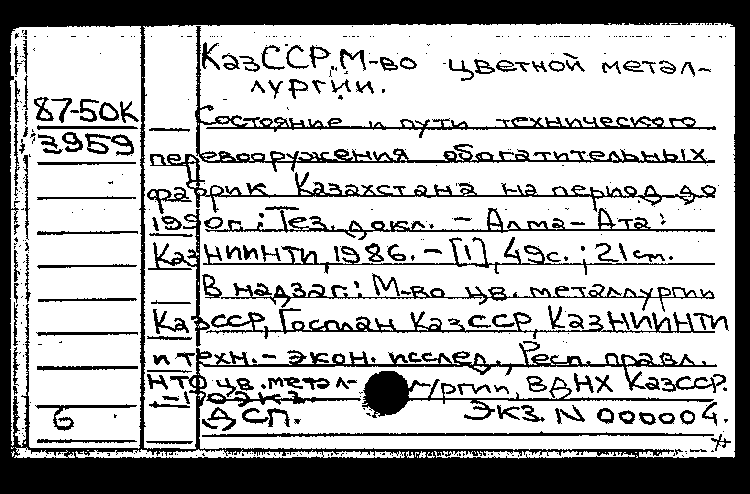 КазССР. М-во цветной метал-
лургии.
87-50К
3959
Состояние и пути технического
перевооружения обогатительных
фабрик Казахстана на период до
1990г.: Тез. докл. - Алма-Ата:
КазНИИНТИ, 1986. - [1], 49с.; 21см.
В надзаг.: М-во цв. металлургии
КазССР, Госплан КазССР, КазНИИНТИ
и техн.-экон. исслед., Респ. правл.
НТО цв. метал- лургии, ВДНХ КазССР.
-170 экз.
6
ДСП. Экз. N 000004.